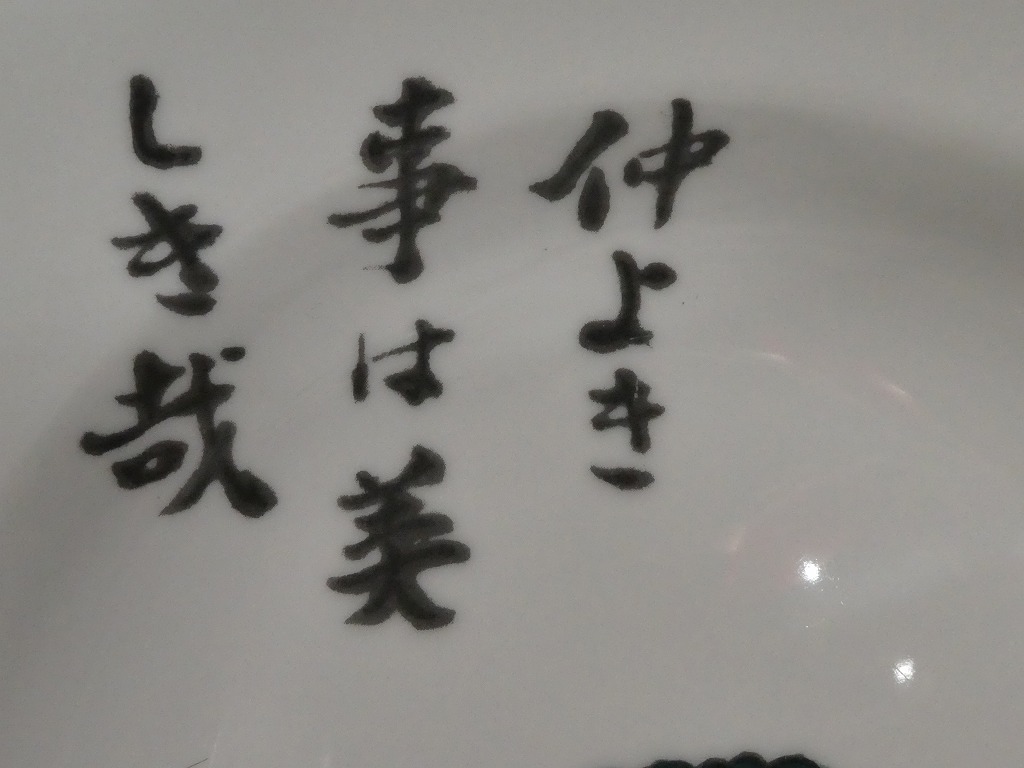 仲よき
事は美
しき哉